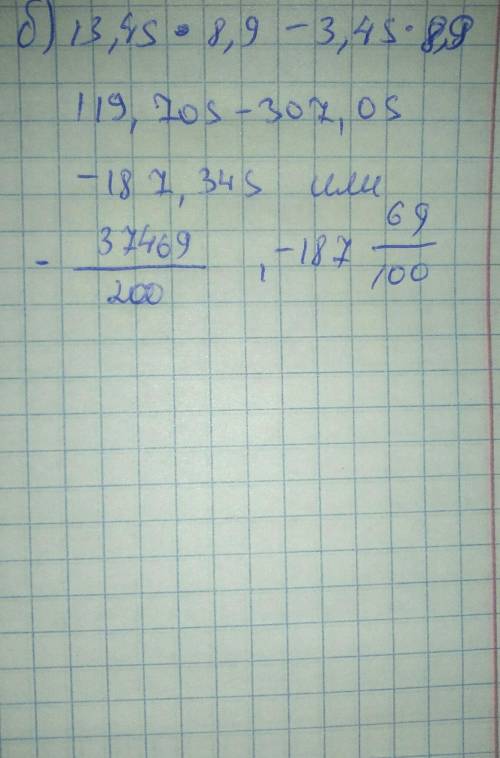 б) 13,45 • 8,9 - 3,45 · 8,9
119,705 - 307,05
-187,345 или
- 37469/200 , -187 69/100